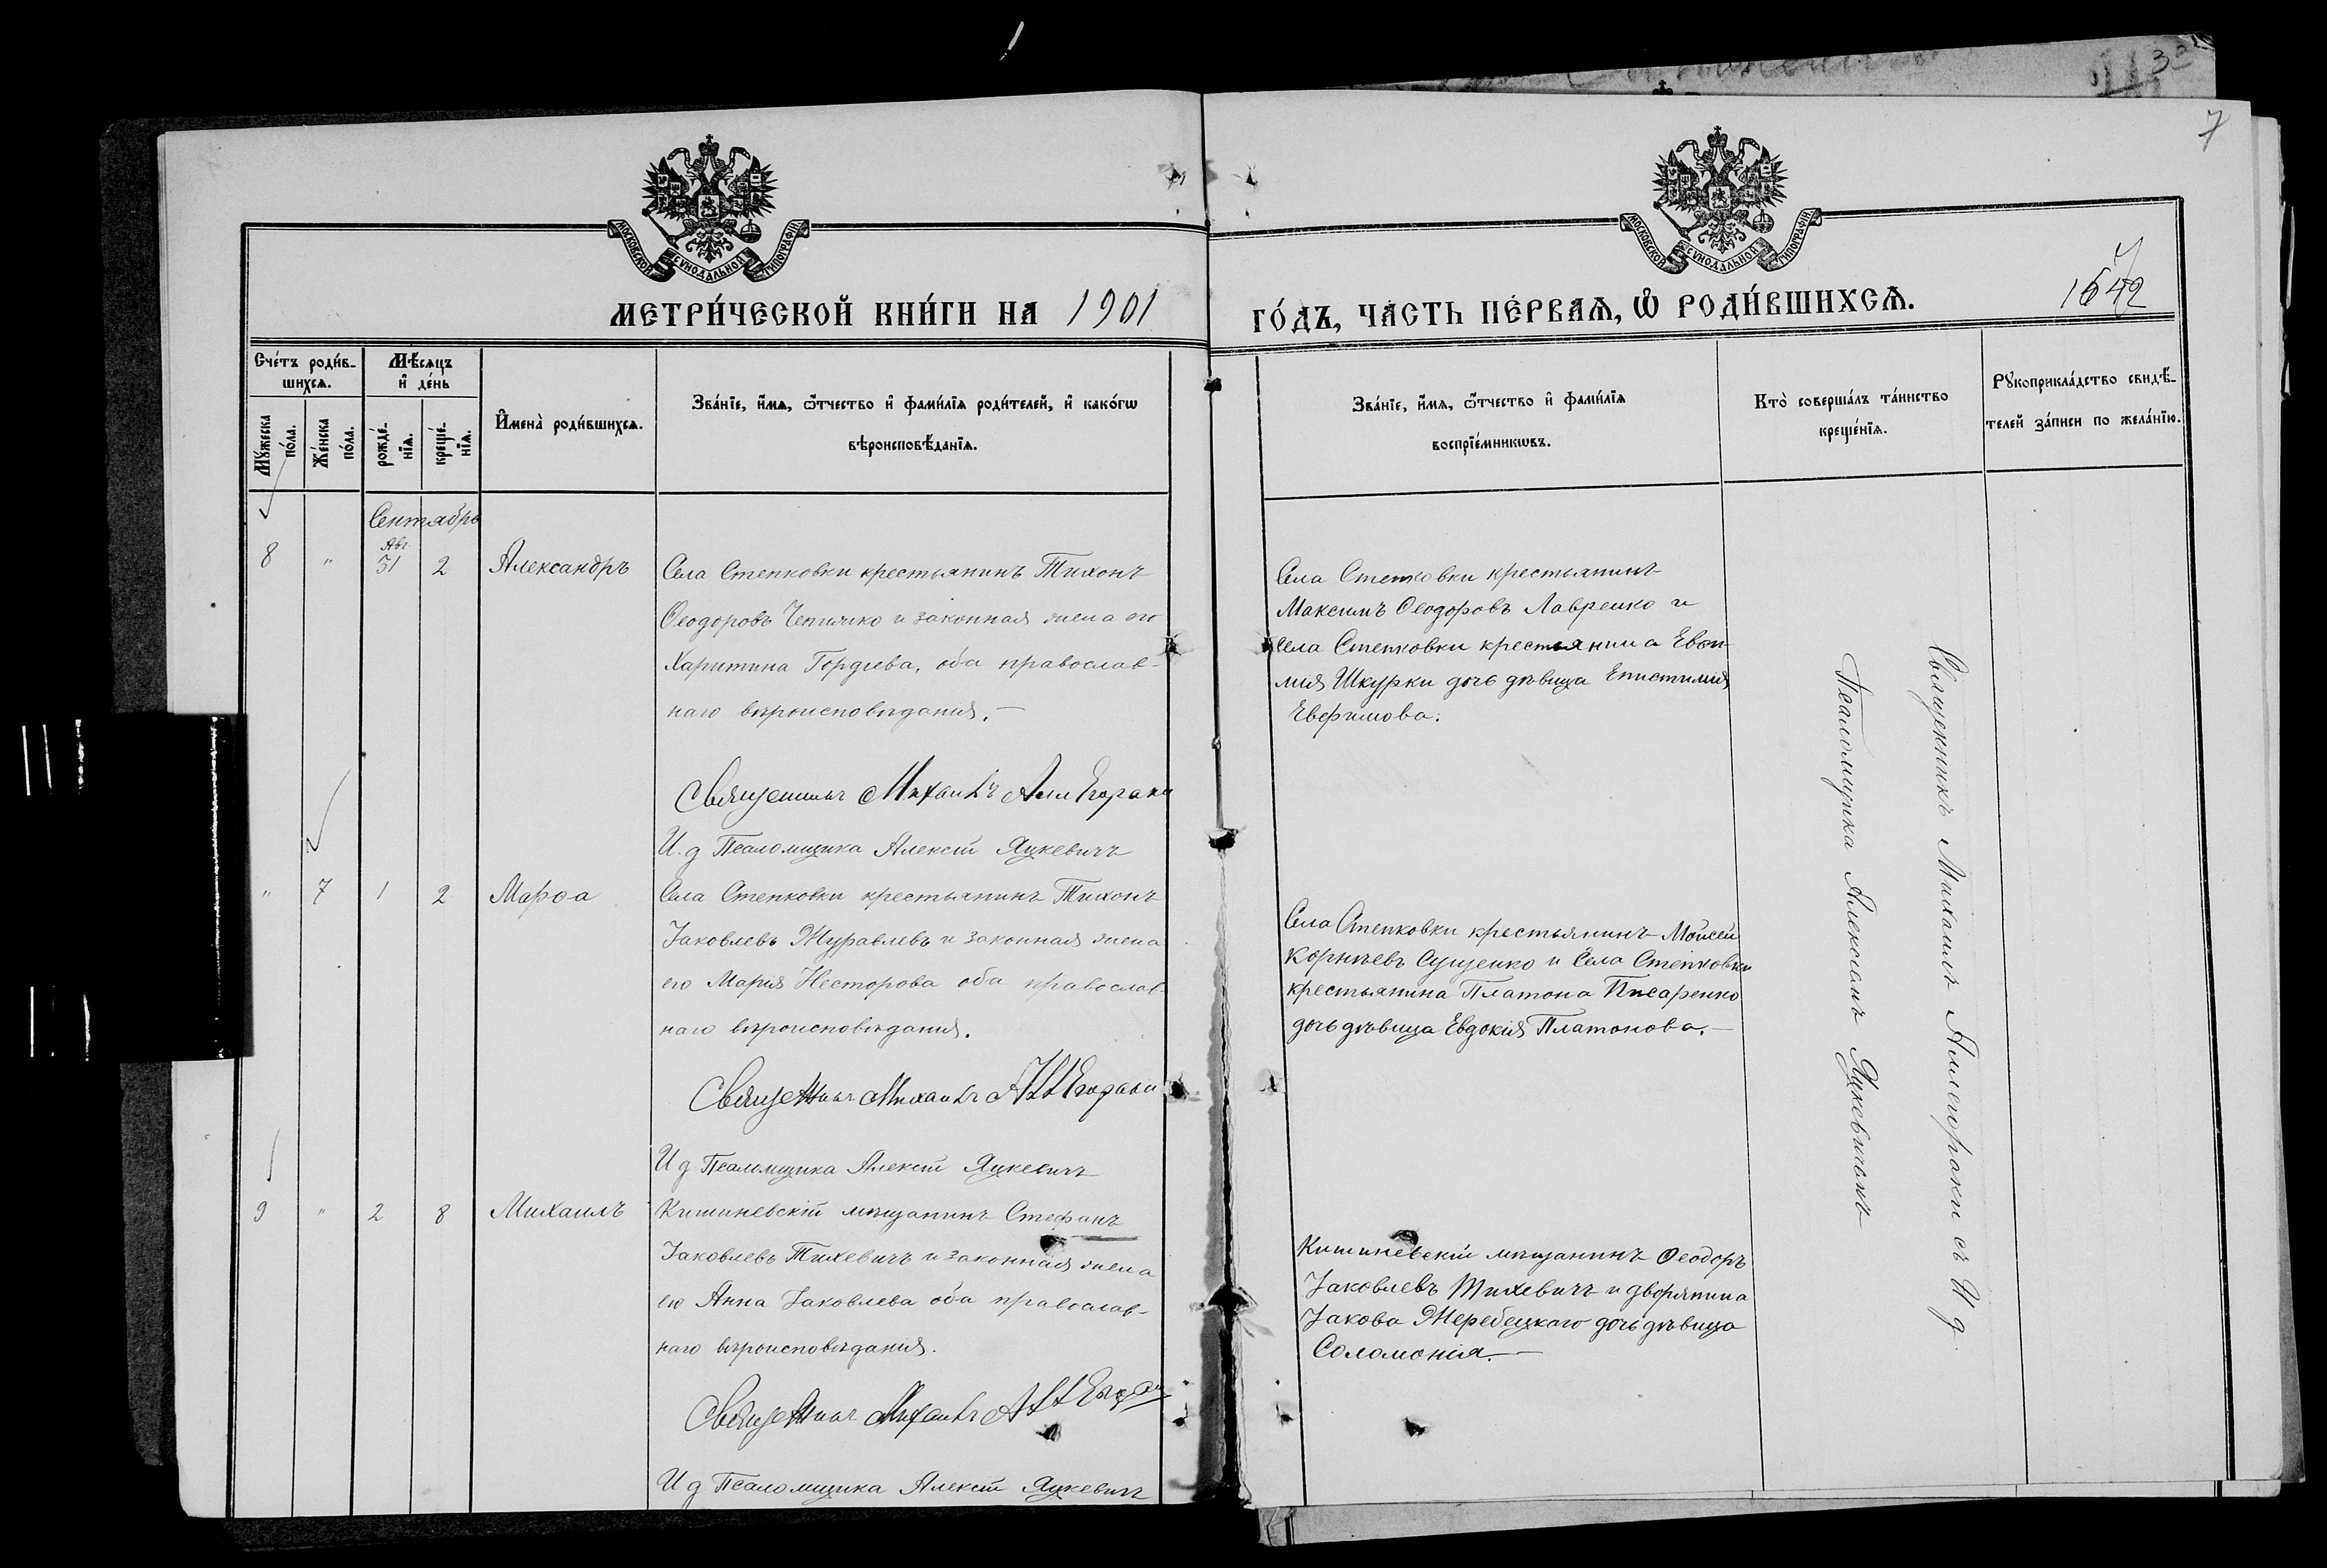 7
МОСКОВСКОЙ СѴНОДАЛЬНОЙ ТИПОГРАФІИ
МОСКОВСКОЙ СѴНОДАЛЬНОЙ ТИПОГРАФІИ
МЕТРИ́ЧЕСКОЙ КНИ́ГИ НА 1901
ГО́ДЪ, ЧА́СТЬ ПЕ́РВАѦ, Ѡ РОДИ́ВШИХСѦ.
Сче́тъ роди́в-
шихсѧ.
Мꙋ́жеска
по́ла.
Же́нска
по́ла.
Мѣ́сѧцъ
и҆ де́нь
рожде́-
нїѧ.
креще́-
нїѧ.
И҆мена̀ роди́вшихсѧ.
Зва́нїе, и҆́мѧ, ѻ҆́тчество и҆ фами́лїѧ роди́телей, и҆ како́гѡ
вѣроисповѣ́данїѧ.
Зва́нїе, и҆́мѧ, ѻ҆́тчество и҆ фами́лїѧ
воспрїе́мникѡвъ.
Кто̀ соверша́лъ та́инство
креще́нїѧ.
Рꙋкоприкла́дство свидѣ́-
телей за́писи по жела́нїю.
Сентябрь
Авг.
8 " 31 2 Александръ
Села Степковки крестьянинъ Тихонъ
Ѳеодоровъ Чепижко и законная жена его
Харитина Гордѣева, оба православ-
наго вѣроисповѣданія.—
Священникъ Михаилъ Аллегораки
И. д Псаломщика Алексѣй Яцкевичъ
Села Степковки крестьянинъ
Максимъ Ѳеодоровъ Лавренко и
села Степковки крестьянина Евѳи-
мія Шкурки дочь дѣвица Епистимія
Евфимова.
" 7 1 2 Марѳа
Села Степковки крестьянинъ Тихонъ
Іаковлевъ Журавлевъ и законная жена
его Марія Несторова оба православ-
наго вѣроисповѣданія.
Священникъ Михаилъ Аллегораки
И д Псаломщика Алексѣй Яцкевичъ
Села Степковки крестьянинъ Моисей
Корнѣевъ Сущенко и Села Степковки
крестьянина Платона Писаренко
дочь дѣвица Евдокія Платонова.—
9 " 2 8 Михаилъ
Кишиневскій мѣщанинъ Стефанъ
Іаковлевъ Тихевичъ и законная жена
его Анна Іаковлева оба православ-
наго вѣроисповѣданія.
Священникъ Михаилъ Аллегораки
И д Псаломщика Алексѣй Яцкевичъ
Кишиневскій мѣщанинъ Ѳеодоръ
Іаковлевъ Тихевичъ и дворянина
Іакова Жеребецкаго дочь дѣвица
Соломонія.—
Священникъ Михаилъ Аллегораки съ И д
Псаломщика Алексѣемъ Яцкевичемъ